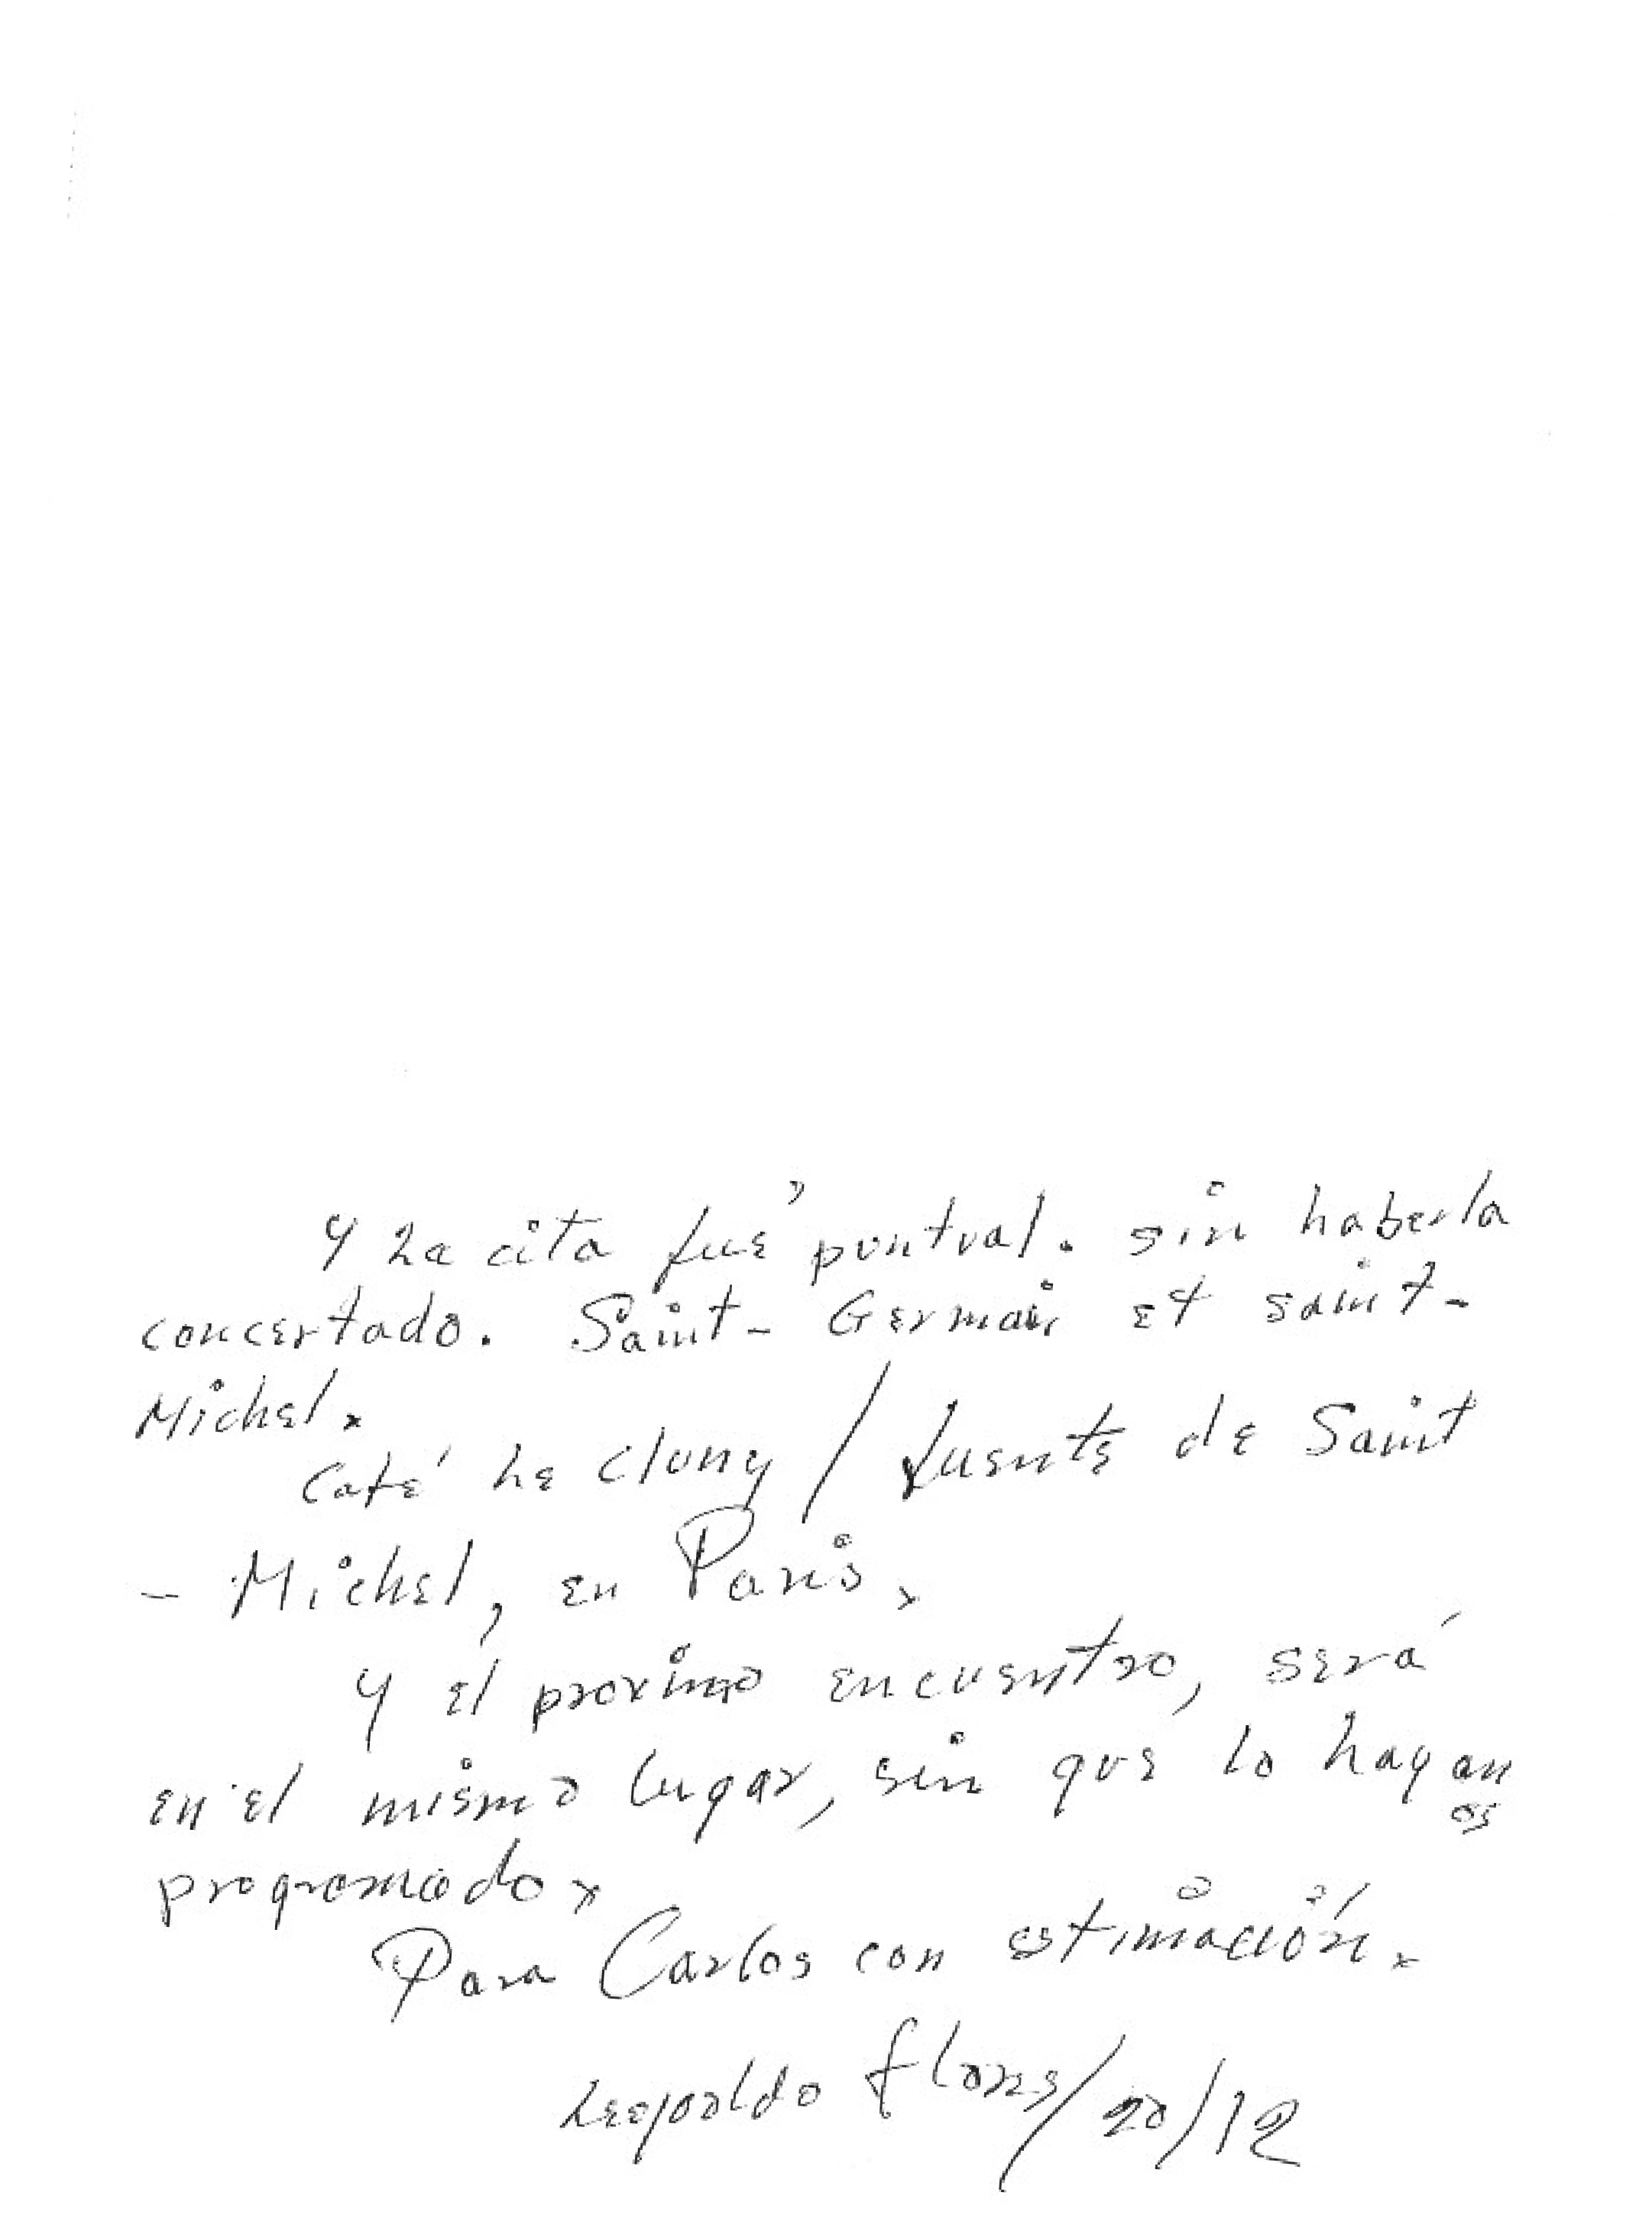 Y La cita fué puntual. sin haberla
concertado. Saint-Germain et saint-
Michel.
Café Le Cluny / fuente de Saint
- Michel, en Paris.
Y el proximo encuentro, será
en el mismo lugar, sin que lo hayan
os
programado.
Para Carlos con estimación.
Leopoldo flores/20/12